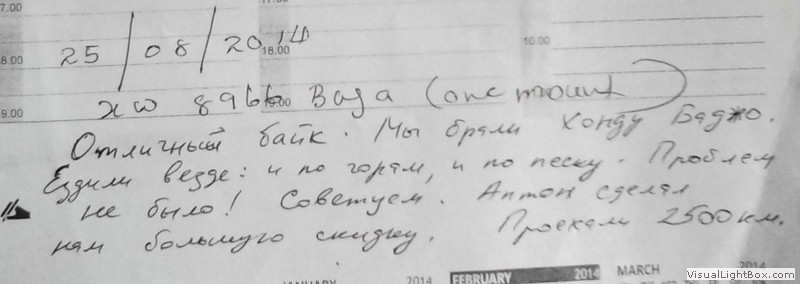 7.00
8.00
9.00
18.00
10.00
25/08/2014
хш 8966 Baja
Отличный байк. Мы брали Хонду Баджо.
Ездили везде: и по горям, и по песку. Проблем
не было! Советуем. Антон сделал
нам большую скидку. Проехали 2500 км.
JANUARY 2014 FEBRUARY 2014 MARCH 2014
VisualLightBox.com